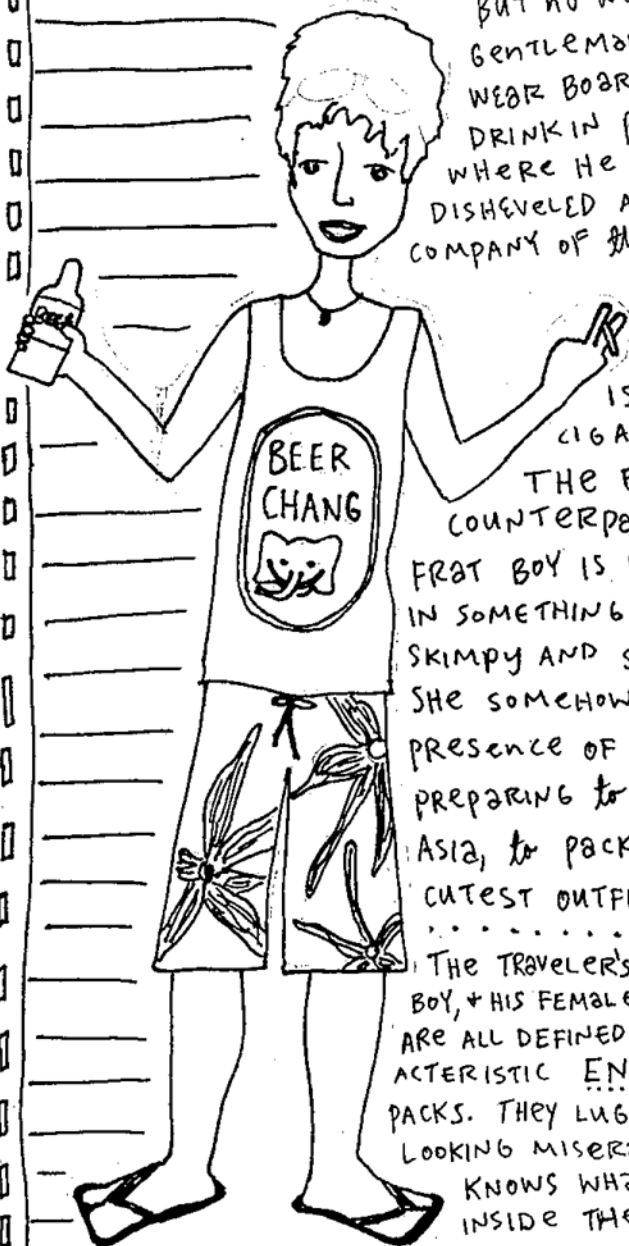 BUT no
GentLema
WEAR BOAR
DRINKIN
WHERE He
DISHEVELED A
COMPANY OF th
BEER
IS
CIGA
BEER
CHANG
THE F
COUNTERPa
FRAT BOY IS
IN SOMETHING
SKIMPY AND S
SHe SOMEHOW
PRESENCE OF
PREPARING to
ASIA, to PACK
CUTEST OUTFI
THE TRAVELER'S
BOY, + HIS FEMALE
ARE ALL DEFINED
ACTERISTIC EN
PACKS. THEY LUG
LOOKING MISERA
KNOWS WHA
INSIDE THE